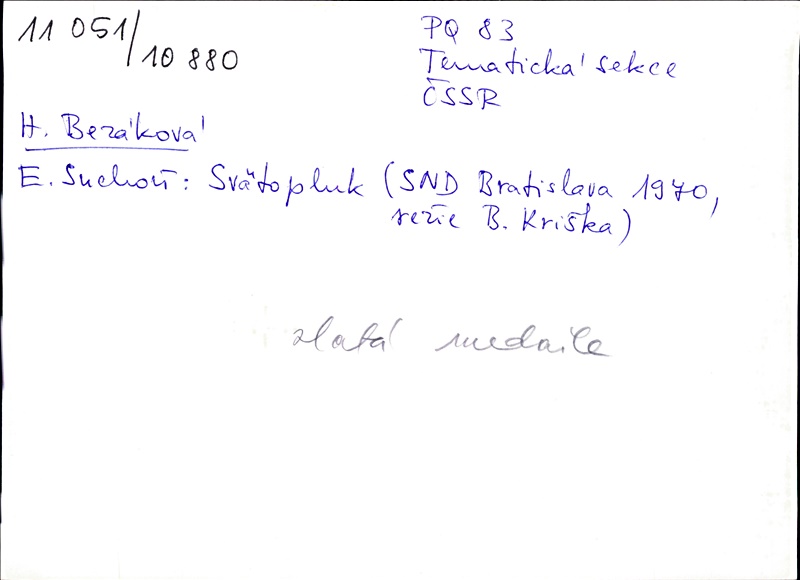 11 051/10 880
PQ 83
Tématická sekce
ČSSR
H. Bezáková
E. Suchoň: Svätopluk (SND Bratislava 1970,
režie B. Kriška)
zlatá medaile